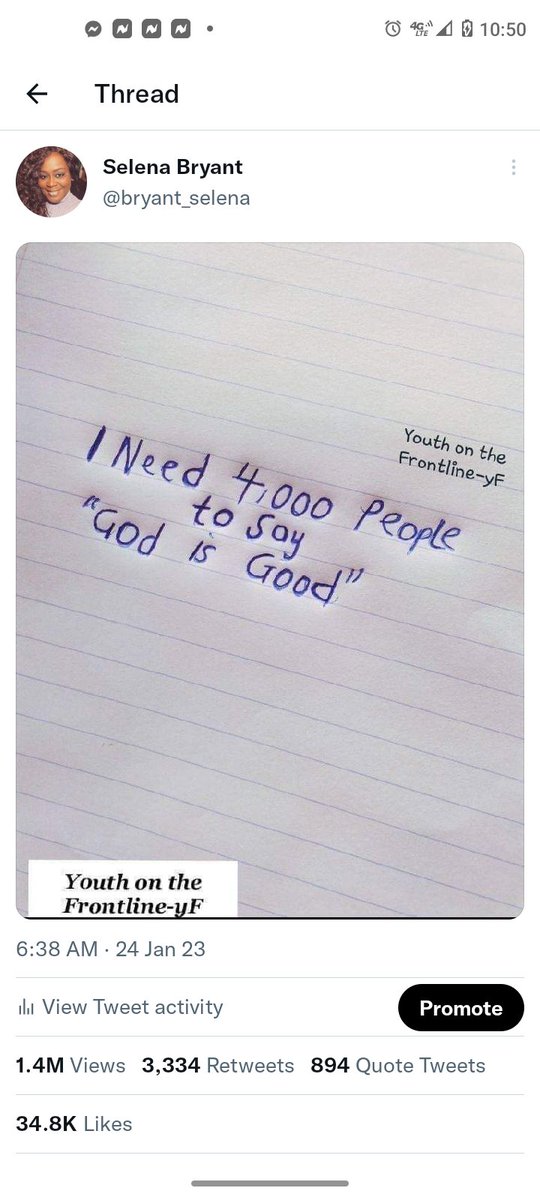 10:50
Thread
Selena Bryant
@bryant_selena
Youth on the
Frontline-yF
I Need 4,000 People
to Say
"God is Good"
Youth on the
Frontline-yF
6:38 AM · 24 Jan 23
View Tweet activity
Promote
1.4M Views 3,334 Retweets 894 Quote Tweets
34.8K Likes